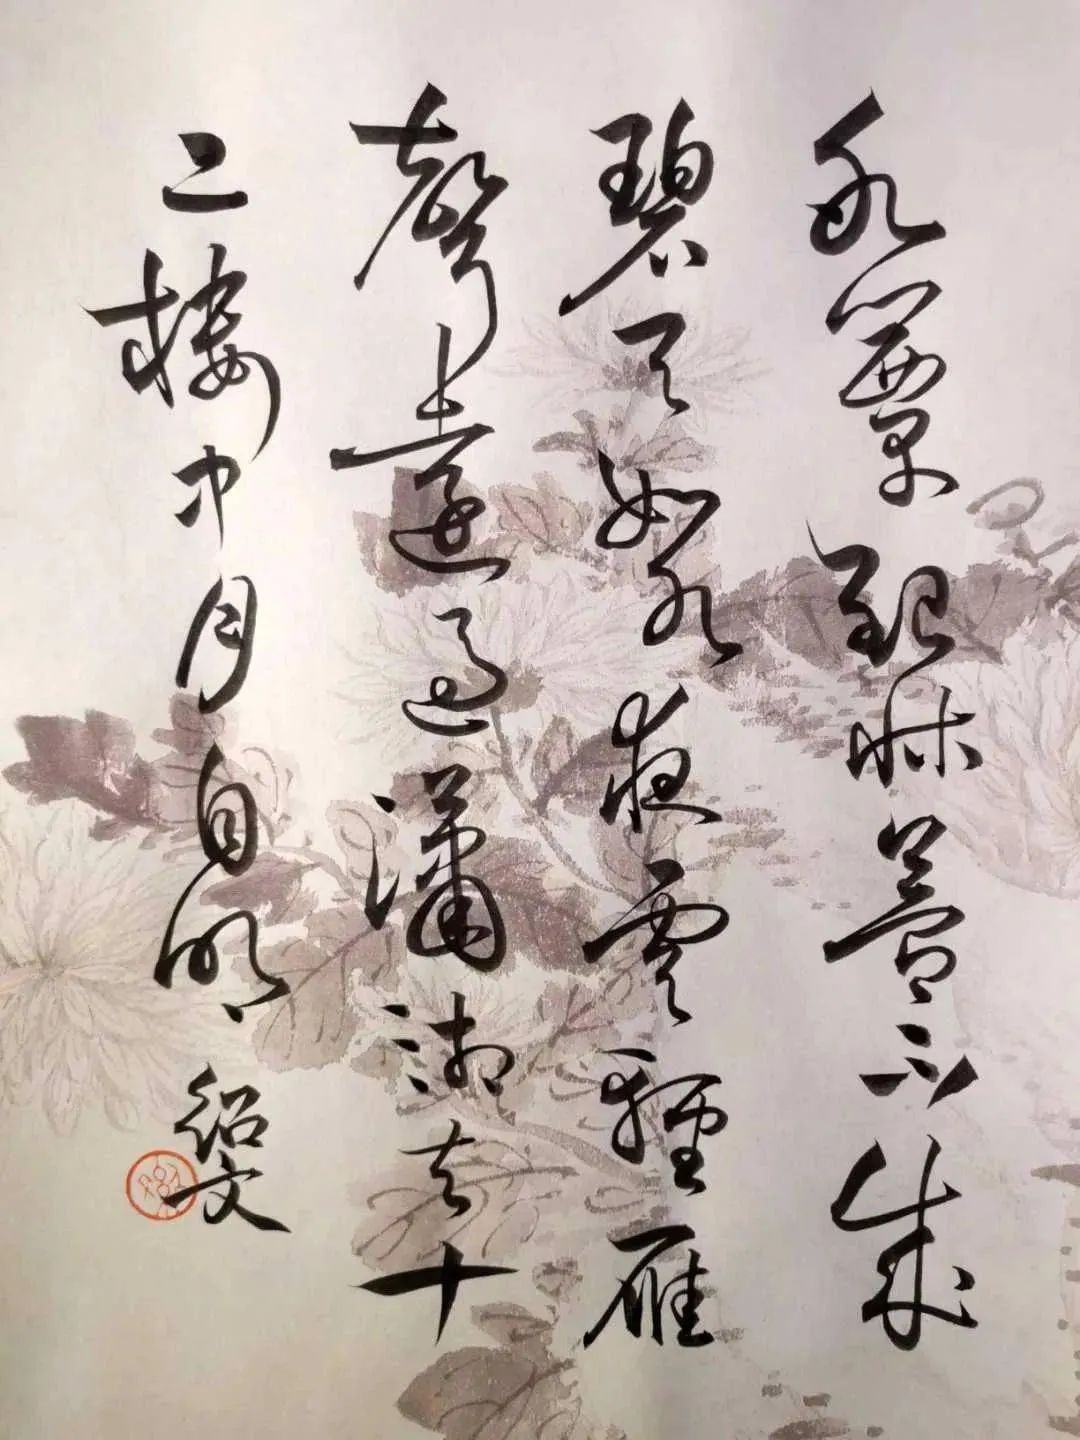 氷簟銀牀夢不成
碧天如水夜雲輕雁
聲遠過瀟湘去十
二樓中月自明 紹文